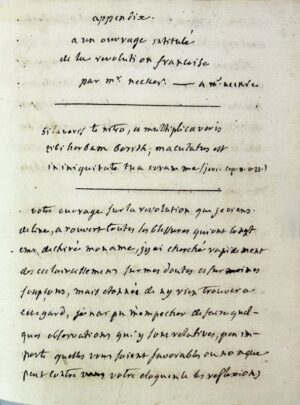 appendix.
a un ouvrage intitulé
de la revolution françoise
par mr. necker. — a mr. necker
si laveris te nitro, et multiplicaveris
tibi herbam borith; maculatus est
in iniquitate tua coram me (jere. cap. 2. v. 22.)
votre ouvrage sur la revolution que je viens
de lire, a rouvert toutes les blessures qui ont longt
ems déchiré mon ame, j'y ai cherché rapidement
des eclaircissemens sur mes doutes et sur mes
soupçons, mais etonnée de n'y rien trouver a
cet egard, je n'ai pu m'empecher de faire quel-
ques observations qui y sont relatives, peu im-
porte quelles vous soient favorables ou non que
peut contre vous votre eloquente les reflexions